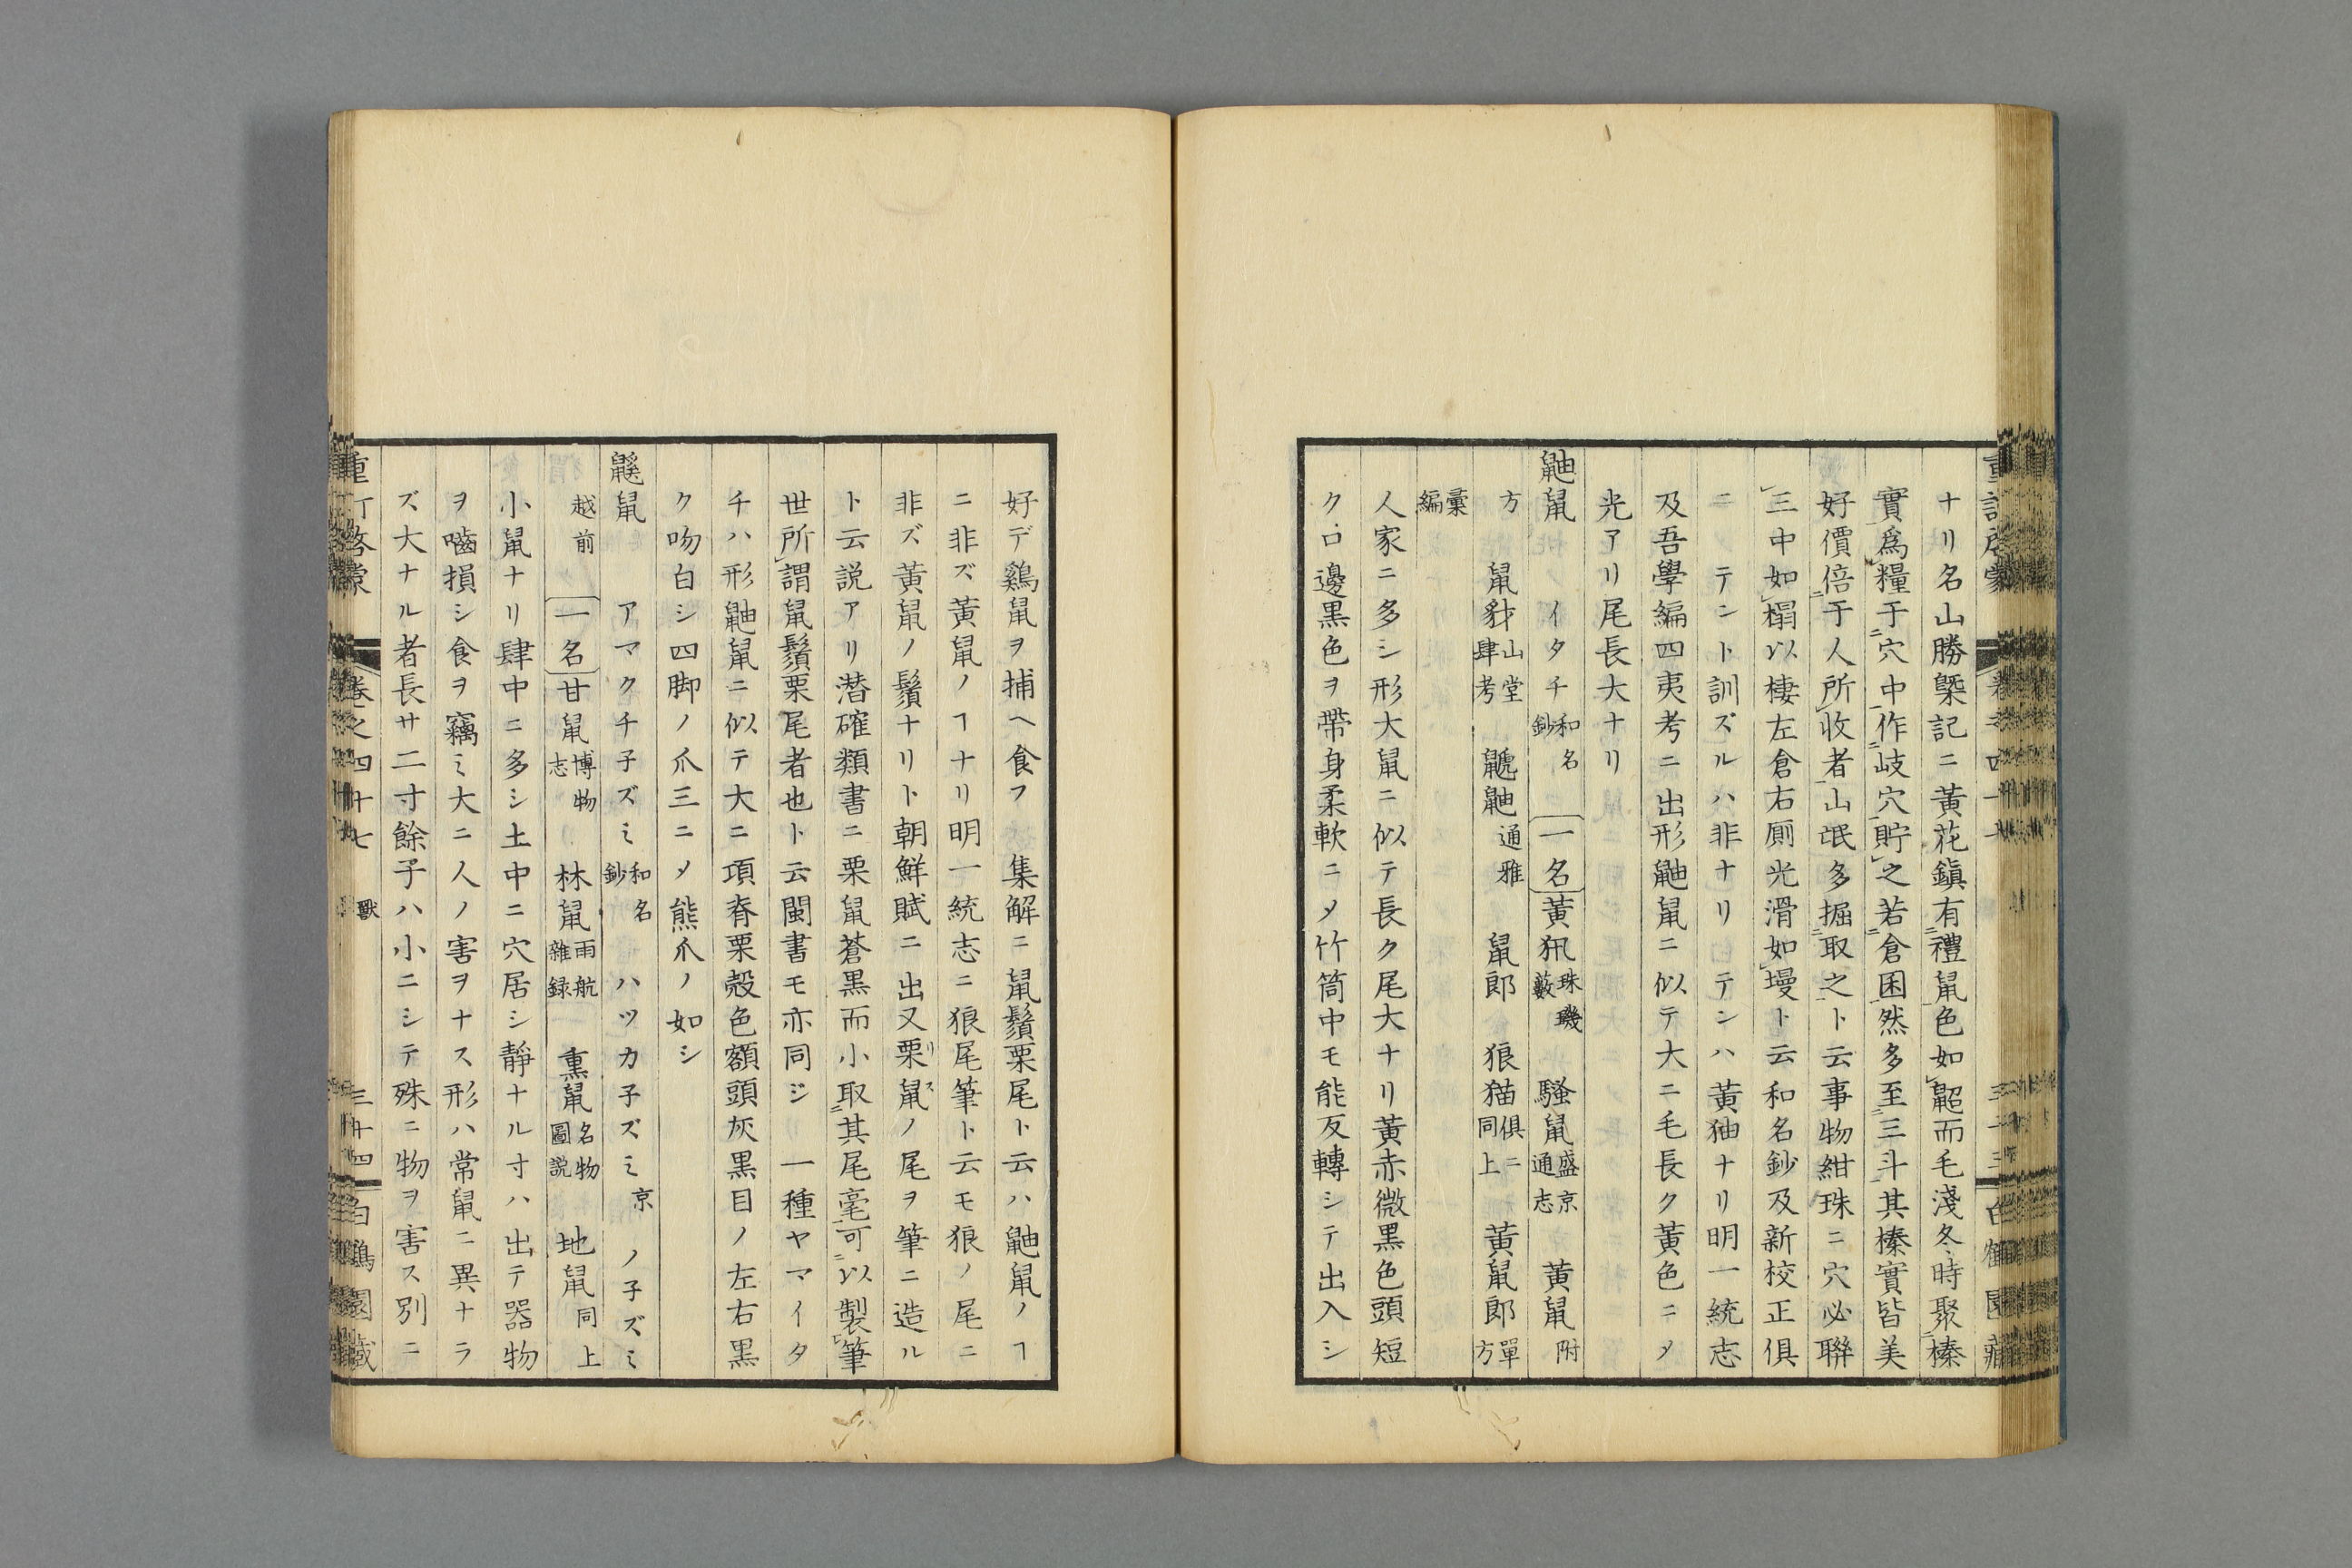 ナリ名山勝槩記ニ黃花鎭有禮鼠色如鼦而毛淺冬時聚榛
實爲糧于穴中作岐穴貯之若倉囷然多至三斗其榛實皆美
好價倍于人所收者山氓多掘取之ト云事物紺珠ニ穴必聯
三中如榻以棲左倉右厠光滑如墁ト云和名鈔及新校正俱
ニテント訓ズルハ非ナリテンハ黃㹨ナリ明一統志
及吾學編四夷考ニ出形鼬鼠ニ似テ大ニ毛長ク黃色ニメ
光アリ尾長大ナリ
鼬鼠 イタチ和名鈔 一名 黃㹯珠璣藪 騷鼠盛京通志 黃鼠附
方 鼠豺山堂肆考 鼶鼬通雅 鼠郎 狼猫俱ニ同上 黃鼠郎單方
彙編
人家ニ多シ形大鼠ニ似テ長ク尾大ナリ黃赤微黑色頭短
ク口邊黑色ヲ帶身柔軟ニメ竹筒中モ能反轉シテ出入シ
好デ鷄鼠ヲ捕ヘ食フ 集解ニ鼠鬚栗尾ト云ハ鼬鼠ノヿ
ニ非ズ黃鼠ノヿナリ明一統志ニ狼尾筆ト云モ狼ノ尾ニ
非ズ黃鼠ノ鬚ナリト朝鮮賦ニ出又栗鼠リスノ尾ヲ筆ニ造ル
ト云説アリ潜確類書ニ栗鼠蒼黑而小取其尾毫可以製筆
世所謂鼠鬚栗尾者也ト云閩書モ亦同ジ 一種ヤマイタ
チハ形鼬鼠ニ似テ大ニ項脊栗殼色額頭灰黑目ノ左右黑
ク吻白シ四脚ノ爪三ニメ熊爪ノ如シ
鼷鼠 アマクチ子ズミ和名鈔 ハツカ子ズミ京 ノ子ズミ
越前 一名 甘鼠博物志 林鼠雨航雜録 熏鼠名物圖説 地鼠同上
小鼠ナリ肆中ニ多シ土中ニ穴居シ靜ナル寸ハ出テ器物
ヲ嚙損シ食ヲ竊ミ大ニ人ノ害ヲナス形ハ常鼠ニ異ナラ
ズ大ナル者長サ二寸餘子ハ小ニシテ殊ニ物ヲ害ス別ニ
重訂啓蒙 卷之四十七 獸 三十四 白鶴園藏